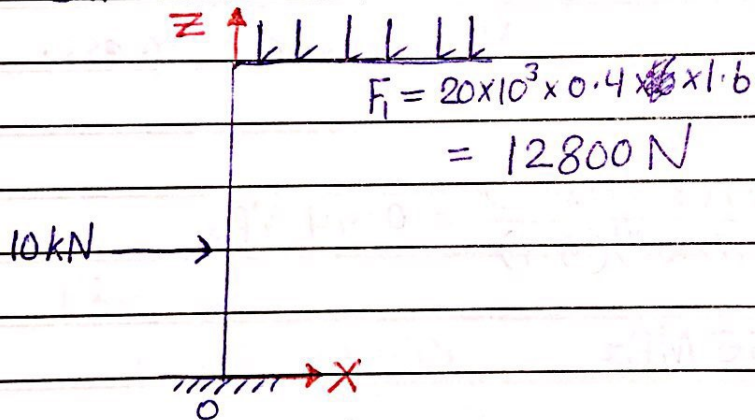 Z
F₁ = 20×10³×0.4××1.6
= 12800 N
10kN
X
O